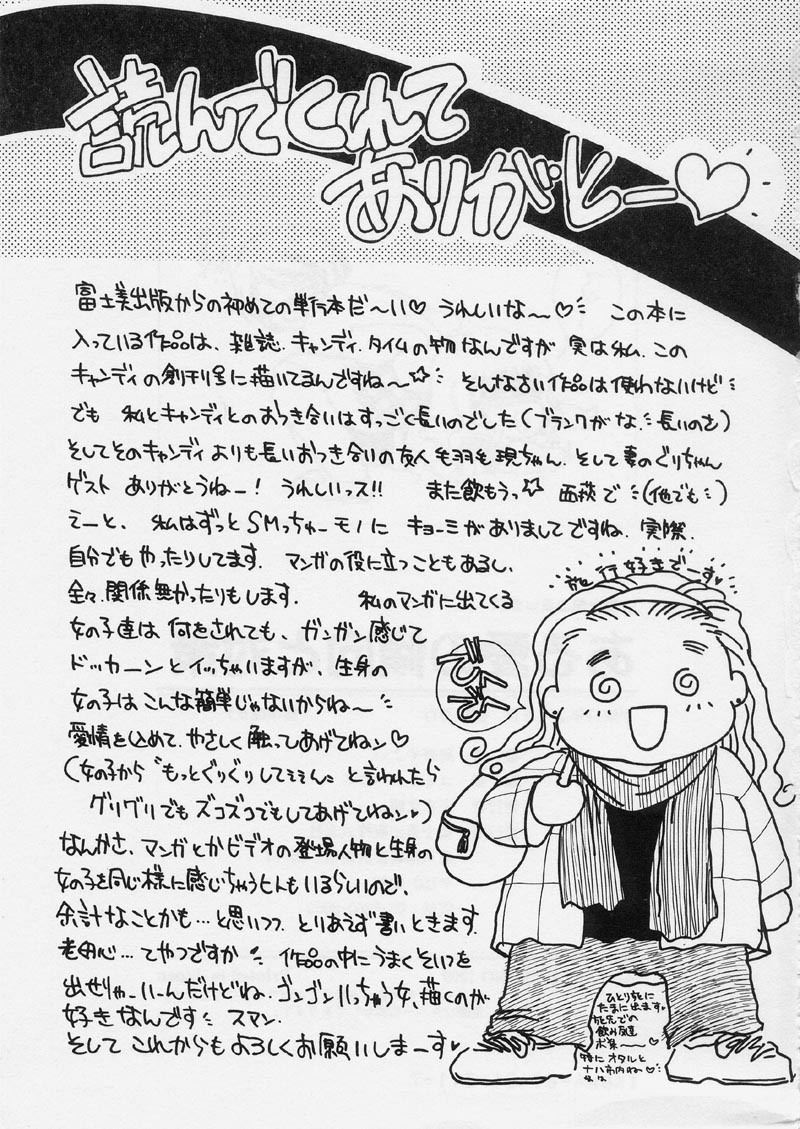 読んでくれて
ありがとー♡
富士美出版からの初めての単行本だ〜い♡ うれしいな〜♡ この本に
入っている作品は、雑誌・キャンディ・タイムの物なんですが 実は私、この
キャンディの創刊号に描いてるんですね〜☆ そんな古い作品は使わないけど
でも 私とキャンディとのおつき合いはすっごく長いのでした(ブランクがな、長いのさ)
そしてそのキャンディよりも長いおつき合いの友人 毛羽毛現ちゃん、そして妻のぐりちゃん
ゲスト ありがとうねー! うれしいっス!! また飲もうっ☆ 西荻で(他でも)
えーと、私はずっとSMっちゅーモノに キョーミがありましてですね、実際、
自分でもやったりしてます. マンガの役に立つこともあるし、
全々、関係無かったりもします. 私のマンガに出てくる
女の子達は 何をされても、ガンガン感じて
ドッカーンとイッちゃいますが、生身の
女の子はこんな簡単じゃないからね〜
愛情を込めて、やさしく触ってあげてねン♡
(女の子から〝もっとぐりぐりしてェェん〟と言われたら
グリグリでもズコズコでもしてあげてねン♥)
なんかさ、マンガとかビデオの登場人物と生身の
女の子を同じ様に感じちゃうヒトもいるらしいので、
余計なことかも…と思いつつ、とりあえず書いときます.
老婆心…てやつですか 作品の中にうまくそいつを
出せりゃーいーんだけどね、ゴンゴンいっちゃう女、描くのが
好きなんです スマン.
そして これからもよろしくお願いしまーす♥
旅行好きでーす♥
ひとりたびに
たまに出ます♥
飲み友達
ボ集〜♡
特にオタルと